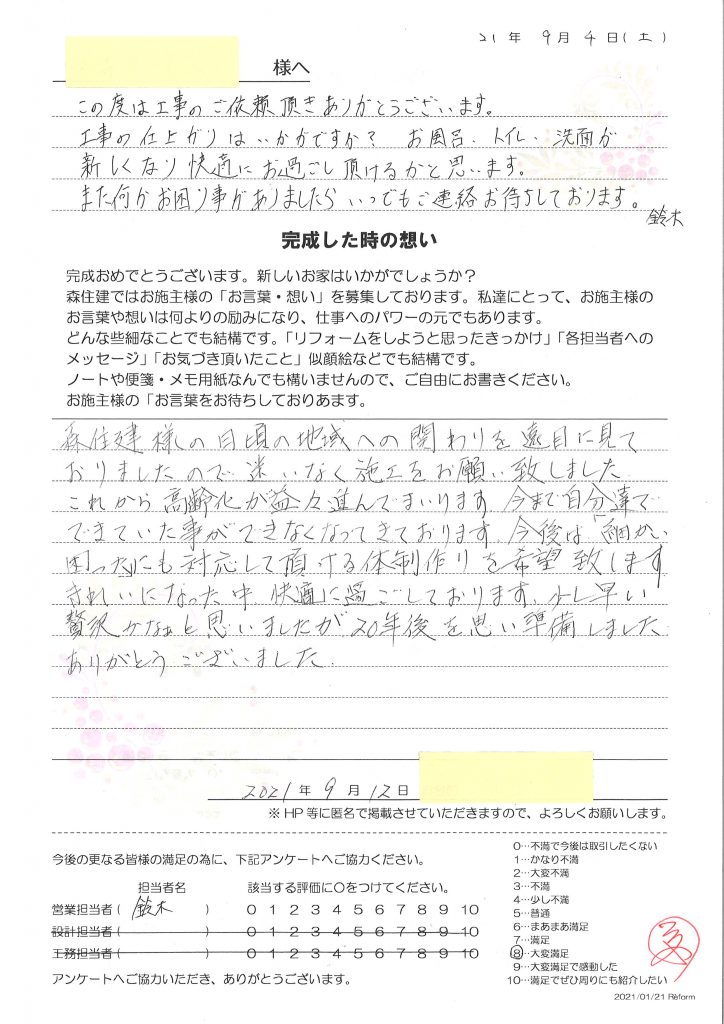 21年 9月 4日(土)
様へ
この度は工事のご依頼頂きありがとうございます。
工事の仕上がりはいかがですか? お風呂、トイレ、洗面が
新しくなり快適にお過ごし頂けるかと思います。
また何かお困り事がありましたらいつでもご連絡お待ちしております。
鈴木
完成した時の想い
完成おめでとうございます。新しいお家はいかがでしょうか?
森住建ではお施主様の「お言葉・想い」を募集しております。私達にとって、お施主様の
お言葉や想いは何よりの励みになり、仕事へのパワーの元でもあります。
どんな些細なことでも結構です。「リフォームをしようと思ったきっかけ」「各担当者への
メッセージ」「お気づき頂いたこと」似顔絵などでも結構です。
ノートや便箋・メモ用紙なんでも構いませんので、ご自由にお書きください。
お施主様の「お言葉をお待ちしておりあます。
森住建様の日頃の地域への関わりを遠目に見て
おりましたので迷いなく施工をお願い致しました
これから高齢化が益々進んでまいります。今まで自分達で
できていた事ができなくなってきております。今後は「細かい
困った」にも対応して頂ける体制作りを希望致します
きれいになった中快適に過ごしております。少し早い
贅沢かなぁと思いましたが20年後を思い準備しました
ありがとうございました.
2021年 9月 12日
※HP等に匿名で掲載させていただきますので、よろしくお願いします。
今後の更なる皆様の満足の為に、下記アンケートへご協力ください。
担当者名 該当する評価に○をつけてください。
営業担当者( 鈴木 ) 0 1 2 3 4 5 6 7 8 9 10
設計担当者( ) 0 1 2 3 4 5 6 7 8 9 10
工務担当者( ) 0 1 2 3 4 5 6 7 8 9 10
アンケートへご協力いただき、ありがとうございます。
0…不満で今後は取引したくない
1…かなり不満
2…大変不満
3…不満
4…少し不満
5…普通
6…まあまあ満足
7…満足
8…大変満足
9…大変満足で感動した
10…満足でぜひ周りにも紹介したい
2021/01/21 Reform